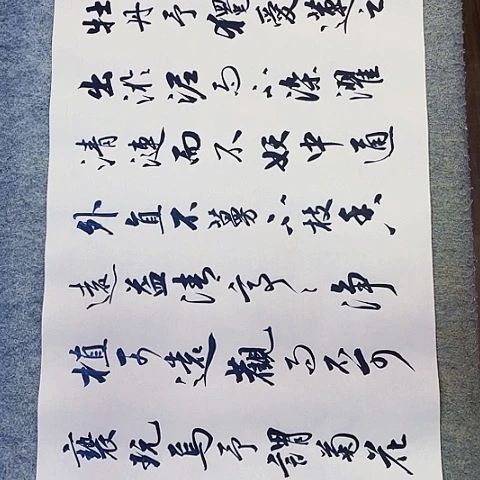 牡丹予獨愛蓮之
出淤泥而不染濯
清漣而不妖中通
外直不蔓不枝香
遠益清亭〻淨
植可遠觀而不可
褻玩焉予謂菊花